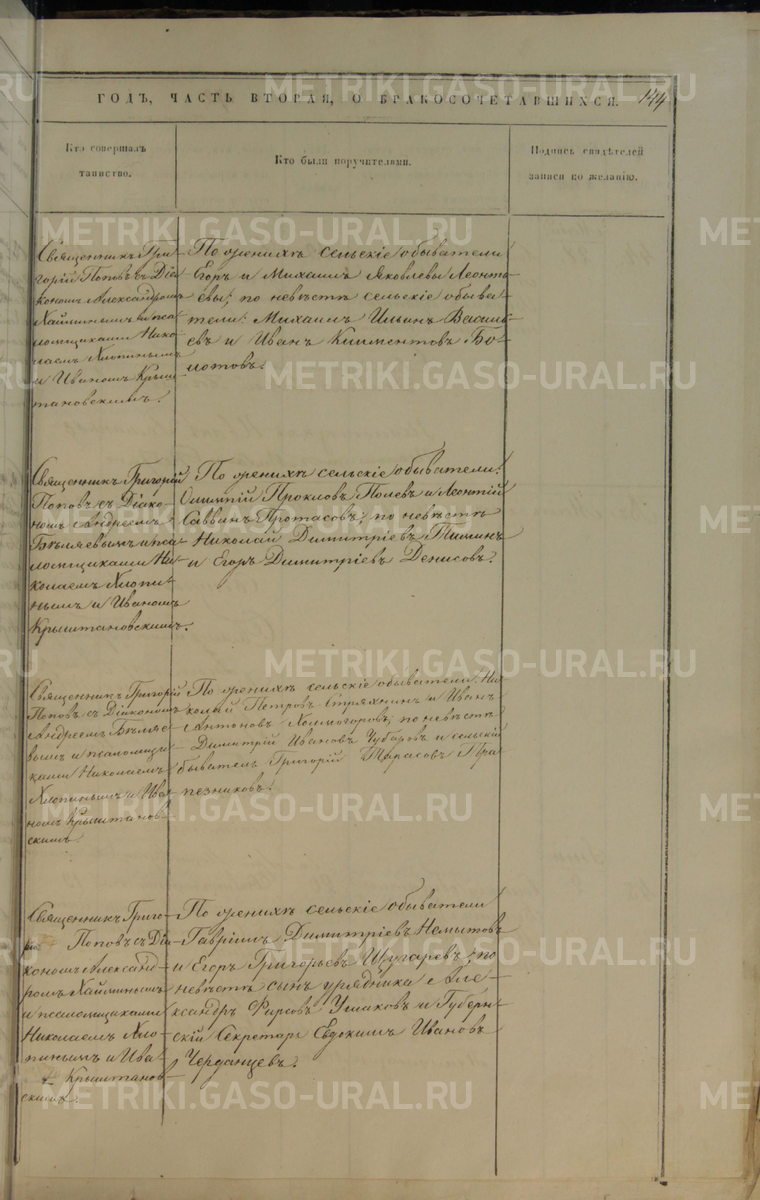 ГОДЪ, ЧАСТЬ ВТОРАЯ, О БРАКОСОЧЕТАВШИХСЯ. 144
Кто совершалъ
таинство.
Кто были поручителями.
Подпись свидѣтелей
записи по желанію.
Священникъ Гри-
горій Поповъ съ Діа-
кономъ Александромъ
Хайминымъ и пса-
ломщиками Нико-
лаемъ Хлопинымъ
и Иваномъ Крыш-
тановскимъ.
По женихѣ сельскіе обыватели
Егоръ и Михаилъ Яковлевы Леонть-
евы; по невѣстѣ сельскіе обыва-
тели: Михаилъ Ильинъ Василь-
евъ и Иванъ Климентовъ Бо-
лотовъ.
Священникъ Григорій
Поповъ съ Діако-
номъ Андреемъ
Бѣляевымъ и пса-
ломщиками Ни-
колаемъ Хлопи-
нымъ и Иваномъ
Крыштановскимъ.
По женихѣ сельскіе обыватели:
Олимпій Прокловъ Полевъ и Леонтій
Саввинъ Протасовъ; по невѣстѣ
Николай Димитріевъ Тиминъ
и Егоръ Димитріевъ Денисовъ.
Священникъ Григорій
Поповъ съ Діакономъ
Андреемъ Бѣляе-
вымъ и псаломщи-
ками Николаемъ
Хлопинымъ и Ива-
номъ Крыштанов-
скимъ.
По женихѣ сельскіе обыватели: Ни-
колай Петровъ Стряхнинъ и Иванъ
Антоновъ Холмогоровъ; по невѣстѣ
Димитрій Ивановъ Чубаровъ и сельскій
обыватель Григорій Тарасовъ Тра-
пезниковъ.
Священникъ Григо-
рій Поповъ съ Діа-
кономъ Александ-
ромъ Хайминымъ
и псаломщиками
Николаемъ Хло-
пинымъ и Ива-
Крыштанов-
скимъ.
По женихѣ сельскіе обыватели
Гавріилъ Димитріевъ Немытовъ
и Егоръ Григорьевъ Шугаревъ; по
невѣстѣ сынъ урядника Але-
ксандръ Фировъ Ушаковъ и Губерн-
скій Секретарь Евдокимъ Ивановъ
Черданцевъ.
METRIKI.GASO-URAL.RU